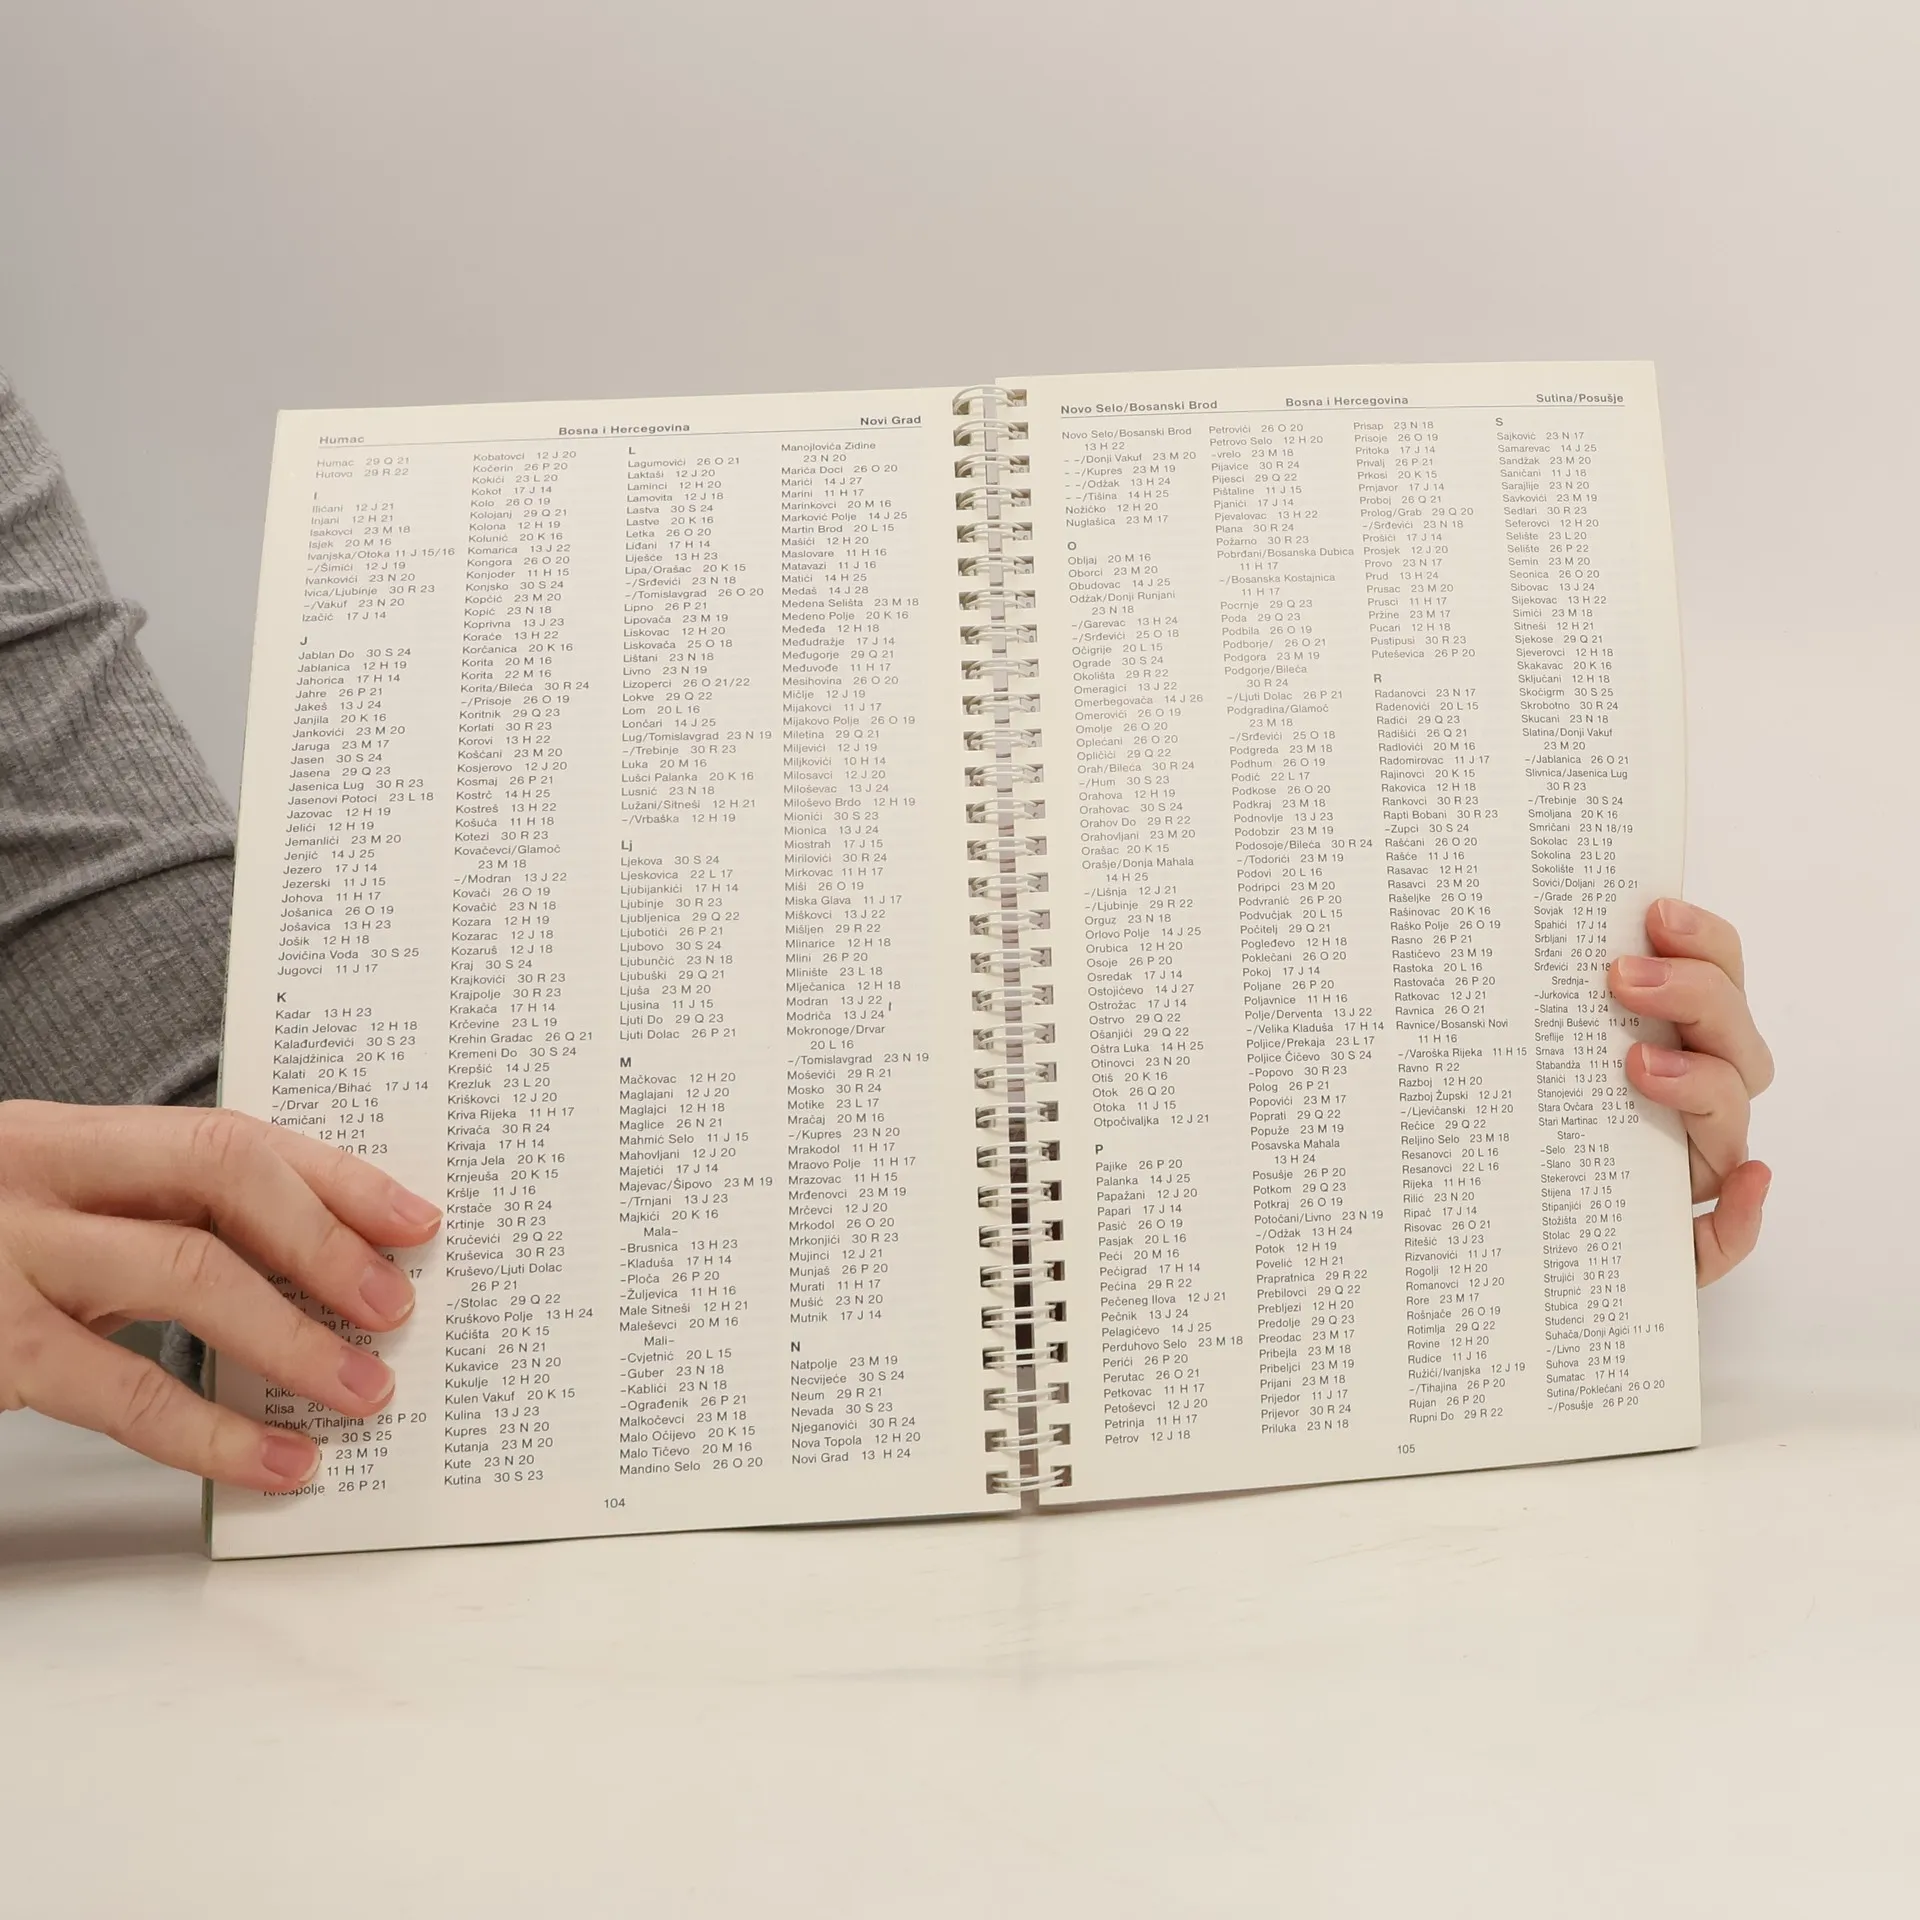 Humac Bosna i Hercegovina Novi Grad
Humac 29 Q 21
Hutovo 29 R 22
I
Ilićani 12 J 21
Injani 12 H 21
Isakovci 23 M 18
Isjek 20 M 16
Ivanjska/Otoka 11 J 15/16
-/Šimići 12 J 19
Ivankovići 23 N 20
Ivica/Ljubinje 30 R 23
-/Vakuf 23 N 20
Izačić 17 J 14
J
Jablan Do 30 S 24
Jablanica 12 H 19
Jahorica 17 H 14
Jahre 26 P 21
Jakeš 13 J 24
Janjila 20 K 16
Jankovići 23 M 20
Jaruga 23 M 17
Jasen 30 S 24
Jasena 29 Q 23
Jasenica Lug 30 R 23
Jasenovi Potoci 23 L 18
Jazovac 12 H 19
Jelići 12 H 19
Jemanlići 23 M 20
Jenjić 14 J 25
Jezero 17 J 14
Jezerski 11 J 15
Johova 11 H 17
Jošanica 26 O 19
Jošavica 13 H 23
Jošik 12 H 18
Jovičina Voda 30 S 25
Jugovci 11 J 17
K
Kadar 13 H 23
Kadin Jelovac 12 H 18
Kalađurđevići 30 S 23
Kalajdžinica 20 K 16
Kalati 20 K 15
Kamenica/Bihać 17 J 14
-/Drvar 20 L 16
Kamičani 12 J 18
12 H 21
R 23
17
Klisa 20
Klobuk/Tihaljina 26 P 20
30 S 25
23 M 19
11 H 17
26 P 21
Kobatovci 12 J 20
Kočerin 26 P 20
Kokići 23 L 20
Kokot 17 J 14
Kolo 26 O 19
Kolojanj 29 Q 21
Kolona 12 H 19
Kolunić 20 K 16
Komarica 13 J 22
Kongora 26 O 20
Konjođer 11 H 15
Konjsko 30 S 24
Kopčić 23 M 20
Kopić 23 N 18
Koprivna 13 J 23
Korače 13 H 22
Korčanica 20 K 16
Korita 20 M 16
Korita 22 M 16
Korita/Bileća 30 R 24
-/Prisoje 26 O 19
Koritnik 29 Q 23
Korlati 30 R 23
Korovi 13 H 22
Košćani 23 M 20
Kosjerovo 12 J 20
Kosmaj 26 P 21
Kostrč 14 H 25
Kostreš 13 H 22
Košuća 11 H 18
Kotezi 30 R 23
Kovačevci/Glamoč
23 M 18
-/Modran 13 J 22
Kovači 26 O 19
Kovačić 23 N 18
Kozara 12 H 19
Kozarac 12 J 18
Kozaruš 12 J 18
Kraj 30 S 24
Krajkovići 30 R 23
Krajpolje 30 R 23
Krakača 17 H 14
Krčevine 23 L 19
Krehin Gradac 26 Q 21
Kremeni Do 30 S 24
Krepšić 14 J 25
Krezluk 23 L 20
Kriškovci 12 J 20
Kriva Rijeka 11 H 17
Krivača 30 R 24
Krivaja 17 H 14
Krnja Jela 20 K 16
Krnjeuša 20 K 15
Kršlje 11 J 16
Krstače 30 R 24
Krtinje 30 R 23
Kručevići 29 Q 22
Kruševica 30 R 23
Kruševo/Ljuti Dolac
26 P 21
-/Stolac 29 Q 22
Kruškovo Polje 13 H 24
Kućišta 20 K 15
Kucani 26 N 21
Kukavice 23 N 20
Kukulje 12 H 20
Kulen Vakuf 20 K 15
Kulina 13 J 23
Kupres 23 N 20
Kutanja 23 M 20
Kute 23 N 20
Kutina 30 S 23
L
Lagumovići 26 O 21
Laktaši 12 J 20
Laminci 12 H 20
Lamovita 12 J 18
Lastva 30 S 24
Lastve 20 K 16
Letka 26 O 20
Liđani 17 H 14
Liješće 13 H 23
Lipa/Orašac 20 K 15
-/Srđevići 23 N 18
-/Tomislavgrad 26 O 20
Lipno 26 P 21
Lipovača 23 M 19
Liskovac 12 H 20
Liskovača 25 O 18
Lištani 23 N 18
Livno 23 N 19
Lizoperci 26 O 21/22
Lokve 29 Q 22
Lom 20 L 16
Lončari 14 J 25
Lug/Tomislavgrad 23 N 19
-/Trebinje 30 R 23
Luka 20 M 16
Lušci Palanka 20 K 16
Lusnić 23 N 18
Lužani/Sitneši 12 H 21
-/Vrbaška 12 H 19
Lj
Ljekova 30 S 24
Ljeskovica 22 L 17
Ljubijankići 17 H 14
Ljubinje 30 R 23
Ljubljenica 29 Q 22
Ljubotići 26 P 21
Ljubovo 30 S 24
Ljubunčić 23 N 18
Ljubuški 29 Q 21
Ljuša 23 M 20
Ljusina 11 J 15
Ljuti Do 29 Q 23
Ljuti Dolac 26 P 21
M
Mačkovac 12 H 20
Maglajani 12 J 20
Maglajci 12 H 18
Maglice 26 N 21
Mahmić Selo 11 J 15
Mahovljani 12 J 20
Majetići 17 J 14
Majevac/Šipovo 23 M 19
-/Trnjani 13 J 23
Majkići 20 K 16
Mala-
-Brusnica 13 H 23
-Kladuša 17 H 14
-Ploča 26 P 20
-Žuljevica 11 H 16
Male Sitneši 12 H 21
Maleševci 20 M 16
Mali-
-Cvjetnić 20 L 15
-Guber 23 N 18
-Kablići 23 N 18
-Ograđenik 26 P 21
Malkočevci 23 M 18
Malo Očijevo 20 K 15
Malo Tičevo 20 M 16
Mandino Selo 26 O 20
Manojlovića Zidine
23 N 20
Marića Doci 26 O 20
Marići 14 J 27
Marini 11 H 17
Marinkovci 20 M 16
Marković Polje 14 J 25
Martin Brod 20 L 15
Mašići 12 H 20
Maslovare 11 H 16
Matavazi 11 J 16
Matići 14 H 25
Medaš 14 J 28
Medena Selišta 23 M 18
Medeno Polje 20 K 16
Međeđa 12 H 18
Međudražje 17 J 14
Međugorje 29 Q 21
Međuvođe 11 H 17
Mesihovina 26 O 20
Mičlje 12 J 19
Mijakovci 11 J 17
Mijakovo Polje 26 O 19
Miletina 29 Q 21
Miljevići 12 J 19
Miljkovići 10 H 14
Milosavci 12 J 20
Miloševac 13 J 24
Miloševo Brdo 12 H 19
Mionići 30 S 23
Mionica 13 J 24
Miostrah 17 J 15
Mirilovići 30 R 24
Mirkovac 11 H 17
Miši 26 O 19
Miska Glava 11 J 17
Miškovci 13 J 22
Mišljen 29 R 22
Mlinarice 12 H 18
Mlini 26 P 20
Mlinište 23 L 18
Mlječanica 12 H 18
Modran 13 J 22
Modriča 13 J 24
Mokronoge/Drvar
20 L 16
-/Tomislavgrad 23 N 19
Moševići 29 R 21
Mosko 30 R 24
Motike 23 L 17
Mračaj 20 M 16
-/Kupres 23 N 20
Mrakodol 11 H 17
Mraovo Polje 11 H 17
Mrazovac 11 H 15
Mrđenovci 23 M 19
Mrčevci 12 J 20
Mrkodol 26 O 20
Mrkonjići 30 R 23
Mujinci 12 J 21
Munjaš 26 P 20
Murati 11 H 17
Mušić 23 N 20
Mutnik 17 J 14
N
Natpolje 23 M 19
Necvijeće 30 S 24
Neum 29 R 21
Nevada 30 S 23
Njeganovići 30 R 24
Nova Topola 12 H 20
Novi Grad 13 H 24
104
Novo Selo/Bosanski Brod Bosna i Hercegovina Sutina/Posušje
Novo Selo/Bosanski Brod
13 H 22
- -/Donji Vakuf 23 M 20
- -/Kupres 23 M 19
- -/Odžak 13 H 24
- -/Tišina 14 H 25
Nožičko 12 H 20
Nuglašica 23 M 17
O
Obljaj 20 M 16
Oborci 23 M 20
Obudovac 14 J 25
Odžak/Donji Runjani
23 N 18
-/Garevac 13 H 24
-/Srđevići 25 O 18
Očigrije 20 L 15
Ograde 30 S 24
Okolišta 29 R 22
Omeragići 13 J 22
Omerbegovača 14 J 26
Omerovići 26 O 19
Omolje 26 O 20
Oplećani 26 O 20
Opličići 29 Q 22
Orah/Bileća 30 R 24
-/Hum 30 S 23
Orahova 12 H 19
Orahovac 30 S 24
Orahov Do 29 R 22
Orahovljani 23 M 20
Orašac 20 K 15
Orašje/Donja Mahala
14 H 25
-/Lišnja 12 J 21
-/Ljubinje 29 R 22
Orguz 23 N 18
Orlovo Polje 14 J 25
Orubica 12 H 20
Osoje 26 P 20
Osredak 17 J 14
Ostojićevo 14 J 27
Ostrožac 17 J 14
Ostrvo 29 Q 22
Ošanjići 29 Q 22
Oštra Luka 14 H 25
Otinovci 23 N 20
Otiš 20 K 16
Otok 26 Q 20
Otoka 11 J 15
Otpočivaljka 12 J 21
P
Pajike 26 P 20
Palanka 14 J 25
Papažani 12 J 20
Papari 17 J 14
Pasić 26 O 19
Pasjak 20 L 16
Peći 20 M 16
Pećigrad 17 H 14
Pećina 29 R 22
Pečeneg Ilova 12 J 21
Pečnik 13 J 24
Pelagićevo 14 J 25
Perduhovo Selo 23 M 18
Perići 26 P 20
Perutac 26 O 21
Petkovac 11 H 17
Petoševci 12 J 20
Petrinja 11 H 17
Petrov 12 J 18
Petrovići 26 O 20
Petrovo Selo 12 H 20
-vrelo 23 M 18
Pijavice 30 R 24
Pijesci 29 Q 22
Pištaline 11 J 15
Pjanići 17 J 14
Pjevalovac 13 H 22
Plana 30 R 24
Požarno 30 R 23
Pobrđani/Bosanska Dubica
11 H 17
-/Bosanska Kostajnica
11 H 17
Pocrnje 29 Q 23
Poda 29 Q 23
Podbila 26 O 19
Podborje/ 26 O 21
Podgora 23 M 19
Podgorje/Bileća
30 R 24
-/Ljuti Dolac 26 P 21
Podgradina/Glamoč
23 M 18
-/Srđevići 25 O 18
Podgreda 23 M 18
Podhum 26 O 19
Podić 22 L 17
Podkose 26 O 20
Podkraj 23 M 18
Podnovlje 13 J 23
Podobzir 23 M 19
Podosoje/Bileća 30 R 24
-/Todorići 23 M 19
Podovi 20 L 16
Podripci 23 M 20
Podvranić 26 P 20
Podvučjak 20 L 15
Počitelj 29 Q 21
Pogleđevo 12 H 18
Poklečani 26 O 20
Pokoj 17 J 14
Poljane 26 P 20
Poljavnice 11 H 16
Polje/Derventa 13 J 22
-/Velika Kladuša 17 H 14
Poljice/Prekaja 23 L 17
Poljice Čičevo 30 S 24
-Popovo 30 R 23
Polog 26 P 21
Popovići 23 M 17
Poprati 29 Q 22
Popuže 23 M 19
Posavska Mahala
13 H 24
Posušje 26 P 20
Potkom 29 Q 23
Potkraj 26 O 19
Potočani/Livno 23 N 19
-/Odžak 13 H 24
Potok 12 H 19
Povelič 12 H 21
Prapratnica 29 R 22
Prebilovci 29 Q 22
Prebljezi 12 H 20
Predolje 29 Q 23
Preodac 23 M 17
Pribelja 23 M 18
Pribeljci 23 M 19
Prijani 23 M 18
Prijedor 11 J 17
Prijevor 30 R 24
Priluka 23 N 18
Prisap 23 N 18
Prisoje 26 O 19
Pritoka 17 J 14
Privalj 26 P 21
Prkosi 20 K 15
Prnjavor 17 J 14
Proboj 26 Q 21
Prolog/Grab 29 Q 20
-/Srđevići 23 N 18
Prošići 17 J 14
Prosjek 12 J 20
Provo 23 N 17
Prud 13 H 24
Prusac 23 M 20
Prusci 11 H 17
Pržine 23 M 17
Pucari 12 H 18
Pustipusi 30 R 23
Puteševica 26 P 20
R
Radanovci 23 N 17
Radenovići 20 L 15
Radići 29 Q 23
Radišići 26 Q 21
Radlovići 20 M 16
Radomirovac 11 J 17
Rajinovci 20 K 15
Rakovica 12 H 18
Rankovci 30 R 23
Rapti Bobani 30 R 23
-Zupci 30 S 24
Rašćani 26 O 20
Rašće 11 J 16
Rasavac 12 H 21
Rasavci 23 M 20
Rašeljke 26 O 19
Rašinovac 20 K 16
Raško Polje 26 O 19
Rasno 26 P 21
Rastičevo 23 M 19
Rastoka 20 L 16
Rastovača 26 P 20
Ratkovac 12 J 21
Ravnica 26 O 21
Ravnice/Bosanski Novi
11 H 16
-/Varoška Rijeka 11 H 15
Ravno R 22
Razboj 12 H 20
Razboj Župski 12 J 21
-/Ljevičanski 12 H 20
Rečice 29 Q 22
Reljino Selo 23 M 18
Resanovci 20 L 16
Resanovci 22 L 16
Rijeka 11 H 16
Rilić 23 N 20
Ripač 17 J 14
Risovac 26 O 21
Ritešić 13 J 23
Rizvanovići 11 J 17
Rogolji 12 H 20
Romanovci 12 J 20
Rore 23 M 17
Rošnjače 26 O 19
Rotimlja 29 Q 22
Rovine 12 H 20
Rudice 11 J 16
Ružići/Ivanjska 12 J 19
-/Tihajina 26 P 20
Rujan 26 P 20
Rupni Do 29 R 22
S
Sajković 23 N 17
Samarevac 14 J 25
Sandžak 23 M 20
Saničani 11 J 18
Sarajlije 23 N 20
Savkovići 23 M 19
Sedlari 30 R 23
Seferovci 12 H 20
Selište 23 L 20
Selište 26 P 22
Semin 23 M 20
Seonica 26 O 20
Sibovac 13 J 24
Sijekovac 13 H 22
Simići 23 M 18
Sitneši 12 H 21
Sjekose 29 Q 21
Sjeverovci 12 H 18
Skakavac 20 K 16
Sključani 12 H 18
Skočigrm 30 S 25
Skrobotno 30 R 24
Skucani 23 N 18
Slatina/Donji Vakuf
23 M 20
-/Jablanica 26 O 21
Slivnica/Jasenica Lug
30 R 23
-/Trebinje 30 S 24
Smoljana 20 K 16
Smričani 23 N 18/19
Sokolac 23 L 19
Sokolina 23 L 20
Sokolište 11 J 16
Sovići/Doljani 26 O 21
-/Grade 26 P 20
Sovjak 12 H 19
Spahići 17 J 14
Srbljani 17 J 14
Srđani 26 O 20
Srđevići 23 N 18
Srednja-
-Jurkovica 12 J
-Slatina 13 J 24
Srednji Bušević 11 J 15
Sreflije 12 H 18
Srnava 13 H 24
Stabandža 11 H 15
Stanići 13 J 23
Stanojevići 29 Q 22
Stara Ovčara 23 L 18
Stari Martinac 12 J 20
Staro-
-Selo 23 N 18
-Slano 30 R 23
Stekerovci 23 M 17
Stijena 17 J 15
Stipanjići 26 O 19
Stožišta 20 M 16
Stolac 29 Q 22
Striževo 26 O 21
Strigova 11 H 17
Strujići 30 R 23
Strupnić 23 N 18
Stubica 29 Q 21
Studenci 29 Q 21
Suhača/Donji Agići 11 J 16
-/Livno 23 N 18
Suhova 23 M 19
Sumatac 17 H 14
Sutina/Poklečani 26 O 20
-/Posušje 26 P 20
105